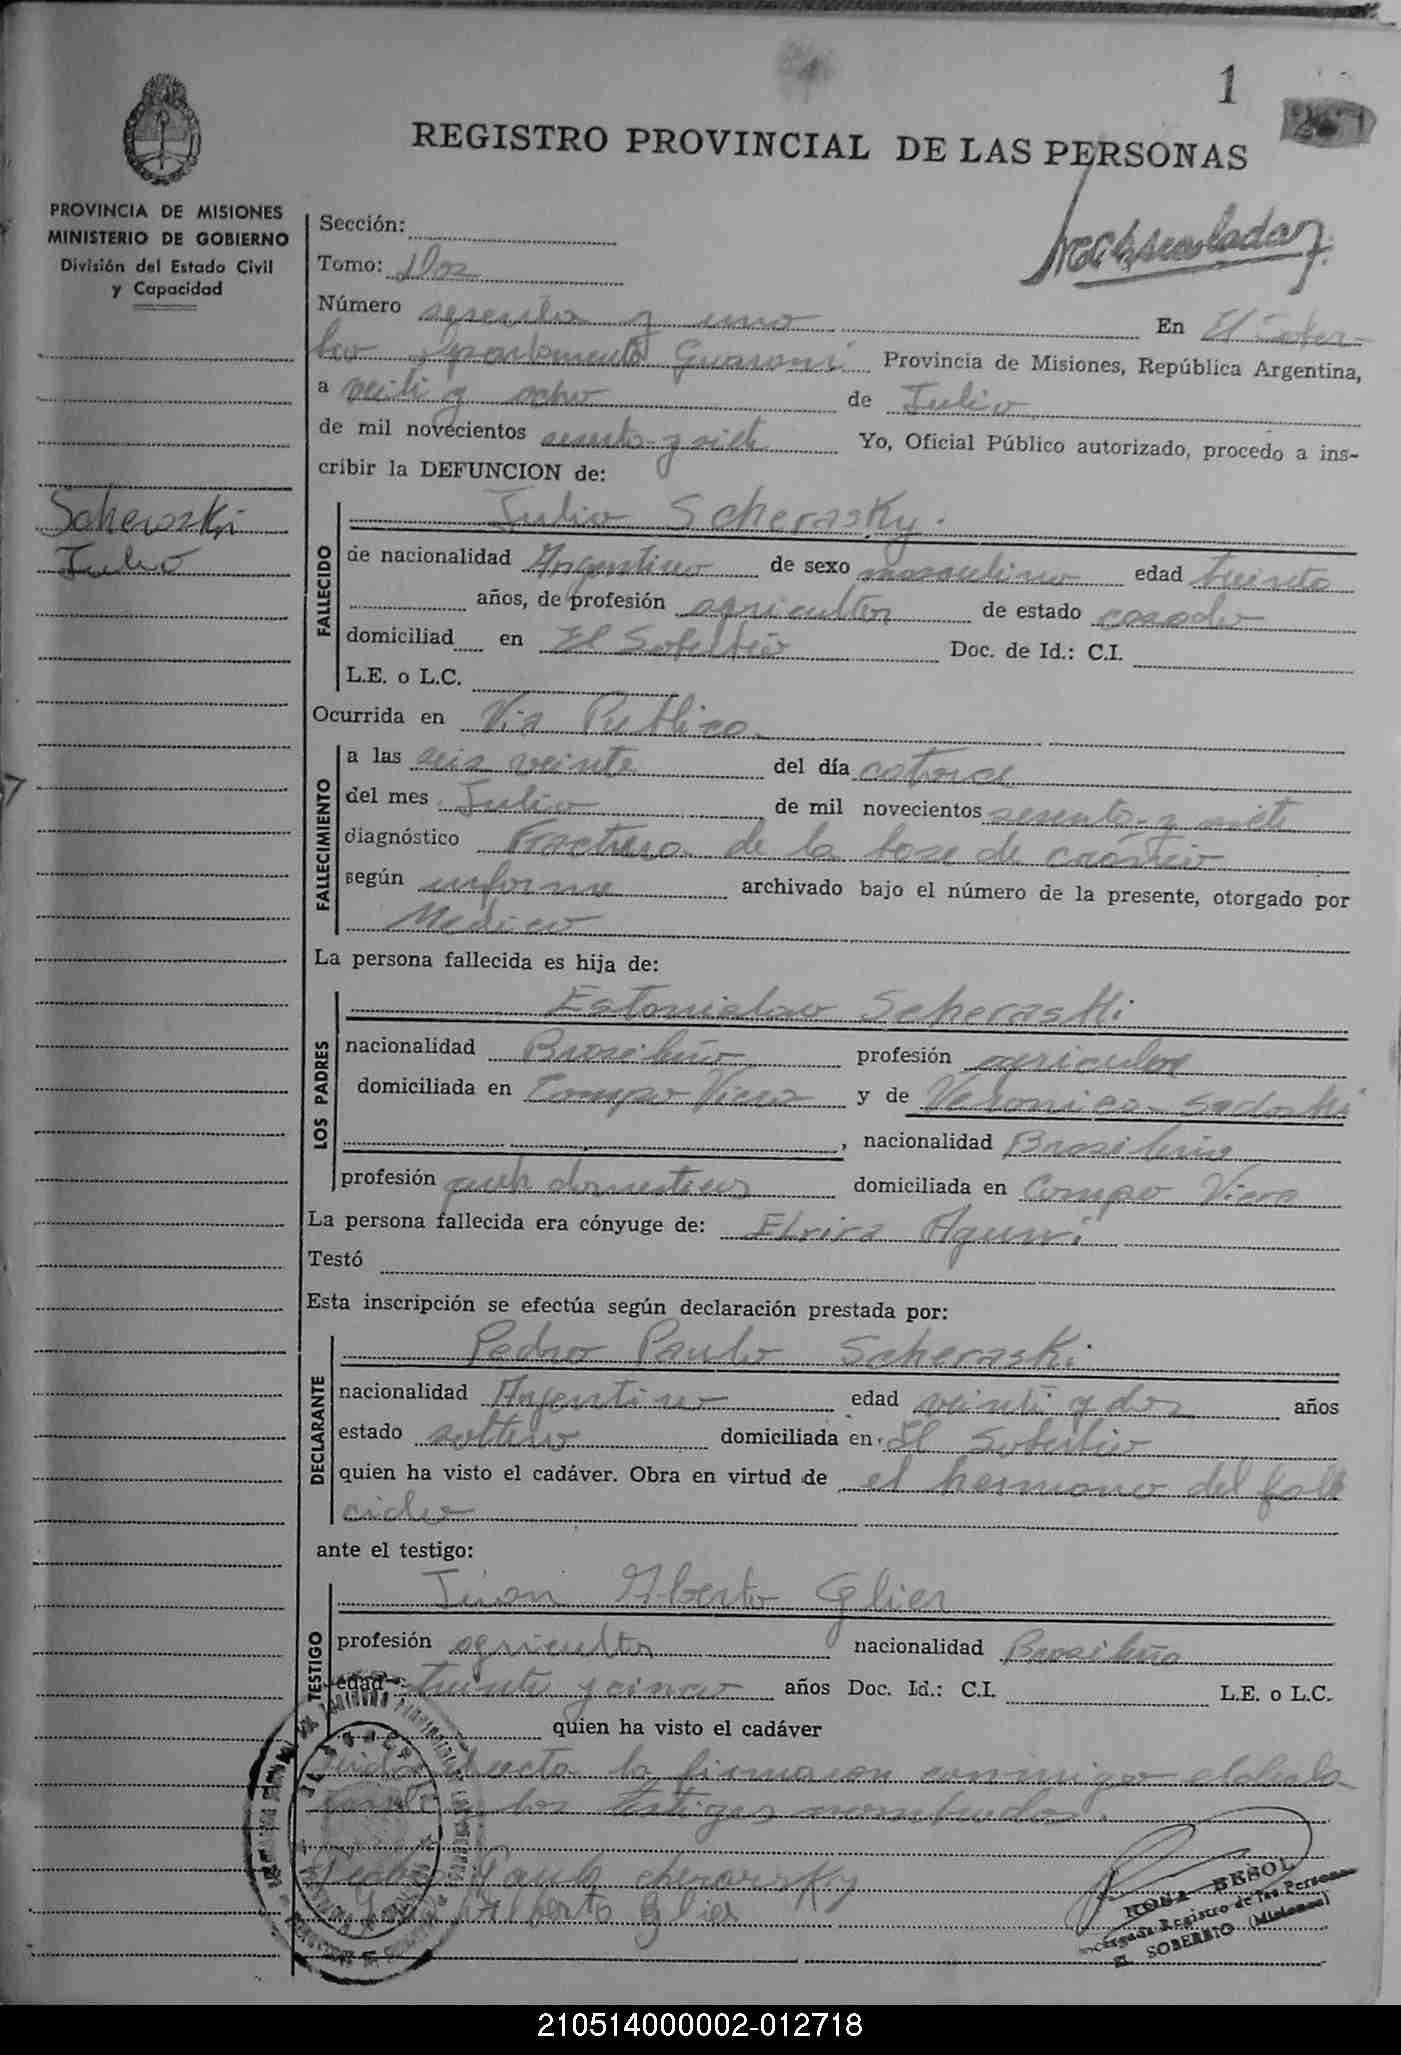 1
REGISTRO PROVINCIAL DE LAS PERSONAS
PROVINCIA DE MISIONES
MINISTERIO DE GOBIERNO
División del Estado Civil
y Capacidad
Sección:
Tomo: Dos
Número sesenta y uno En El Sober-
bio departamento Guarani Provincia de Misiones, República Argentina,
a veiti y ocho de Julio
de mil novecientos sesenta y siete Yo, Oficial Público autorizado, procedo a ins-
cribir la DEFUNCION de:
Scheraski
Julio
FALLECIDO
Julio Scherasky.
de nacionalidad Argentino de sexo masculino edad treinta
años, de profesión agricultor de estado casado
domiciliad en El Soberbio Doc. de Id.: C.I.
L.E. o L.C.
Ocurrida en Via Publica
FALLECIMIENTO
a las seis veinte del día catorce
del mes Julio de mil novecientos sesenta y siete
diagnóstico Fractura de la base de craneo
según informe archivado bajo el número de la presente, otorgado por
Medico
La persona fallecida es hija de:
LOS PADRES
Estanislao Scheraski
nacionalidad Brasileño profesión agricultor
domiciliada en Campo Viera y de Veronica Sadoski
, nacionalidad Brasileña
profesión queh domesticos domiciliada en Campo Viera
La persona fallecida era cónyuge de: Elvira
Testó
Esta inscripción se efectúa según declaración prestada por:
DECLARANTE
Pedro Paulo Scheraski
nacionalidad Argentino edad veinti y dos años
estado soltero domiciliada en El Soberbio
quien ha visto el cadáver. Obra en virtud de el hermano del falle
cido
ante el testigo:
TESTIGO
Juan Alberto Glier
profesión agricultor nacionalidad Brasileño
edad treinta y cinco años Doc. Id.: C.I. L.E. o L.C.
quien ha visto el cadáver
Leida el acta la firmaron conmigo el decla
rante y los testigos nombrados.
Pedro Paulo cherarsky
Juan Alberto Glier
ROSA BESOL
Encargada Registro de las Personas
EL SOBERBIO (Misiones)
210514000002-012718